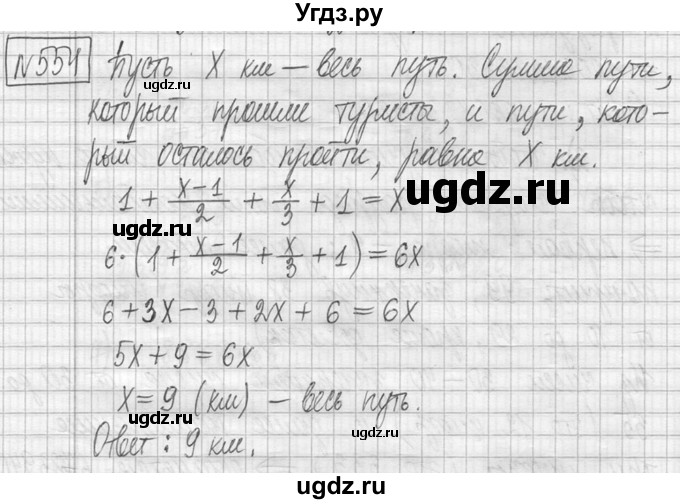 Угдз.ру
№ 554 Пусть X км – весь путь. Сумма пути,
который прошли туристы, и пути, кото-
рый осталось пройти, равна X км.
1 + (x-1)/2 + x/3 + 1 = X
ugdz.ru
ugdz.ru
6·(1 + (x-1)/2 + x/3 + 1) = 6X
6 + 3X - 3 + 2X + 6 = 6X
ugdz.ru
5X + 9 = 6X
X = 9 (км) – весь путь.
ugdz.ru
ugdz.ru
Ответ: 9 км.
ugdz.ru